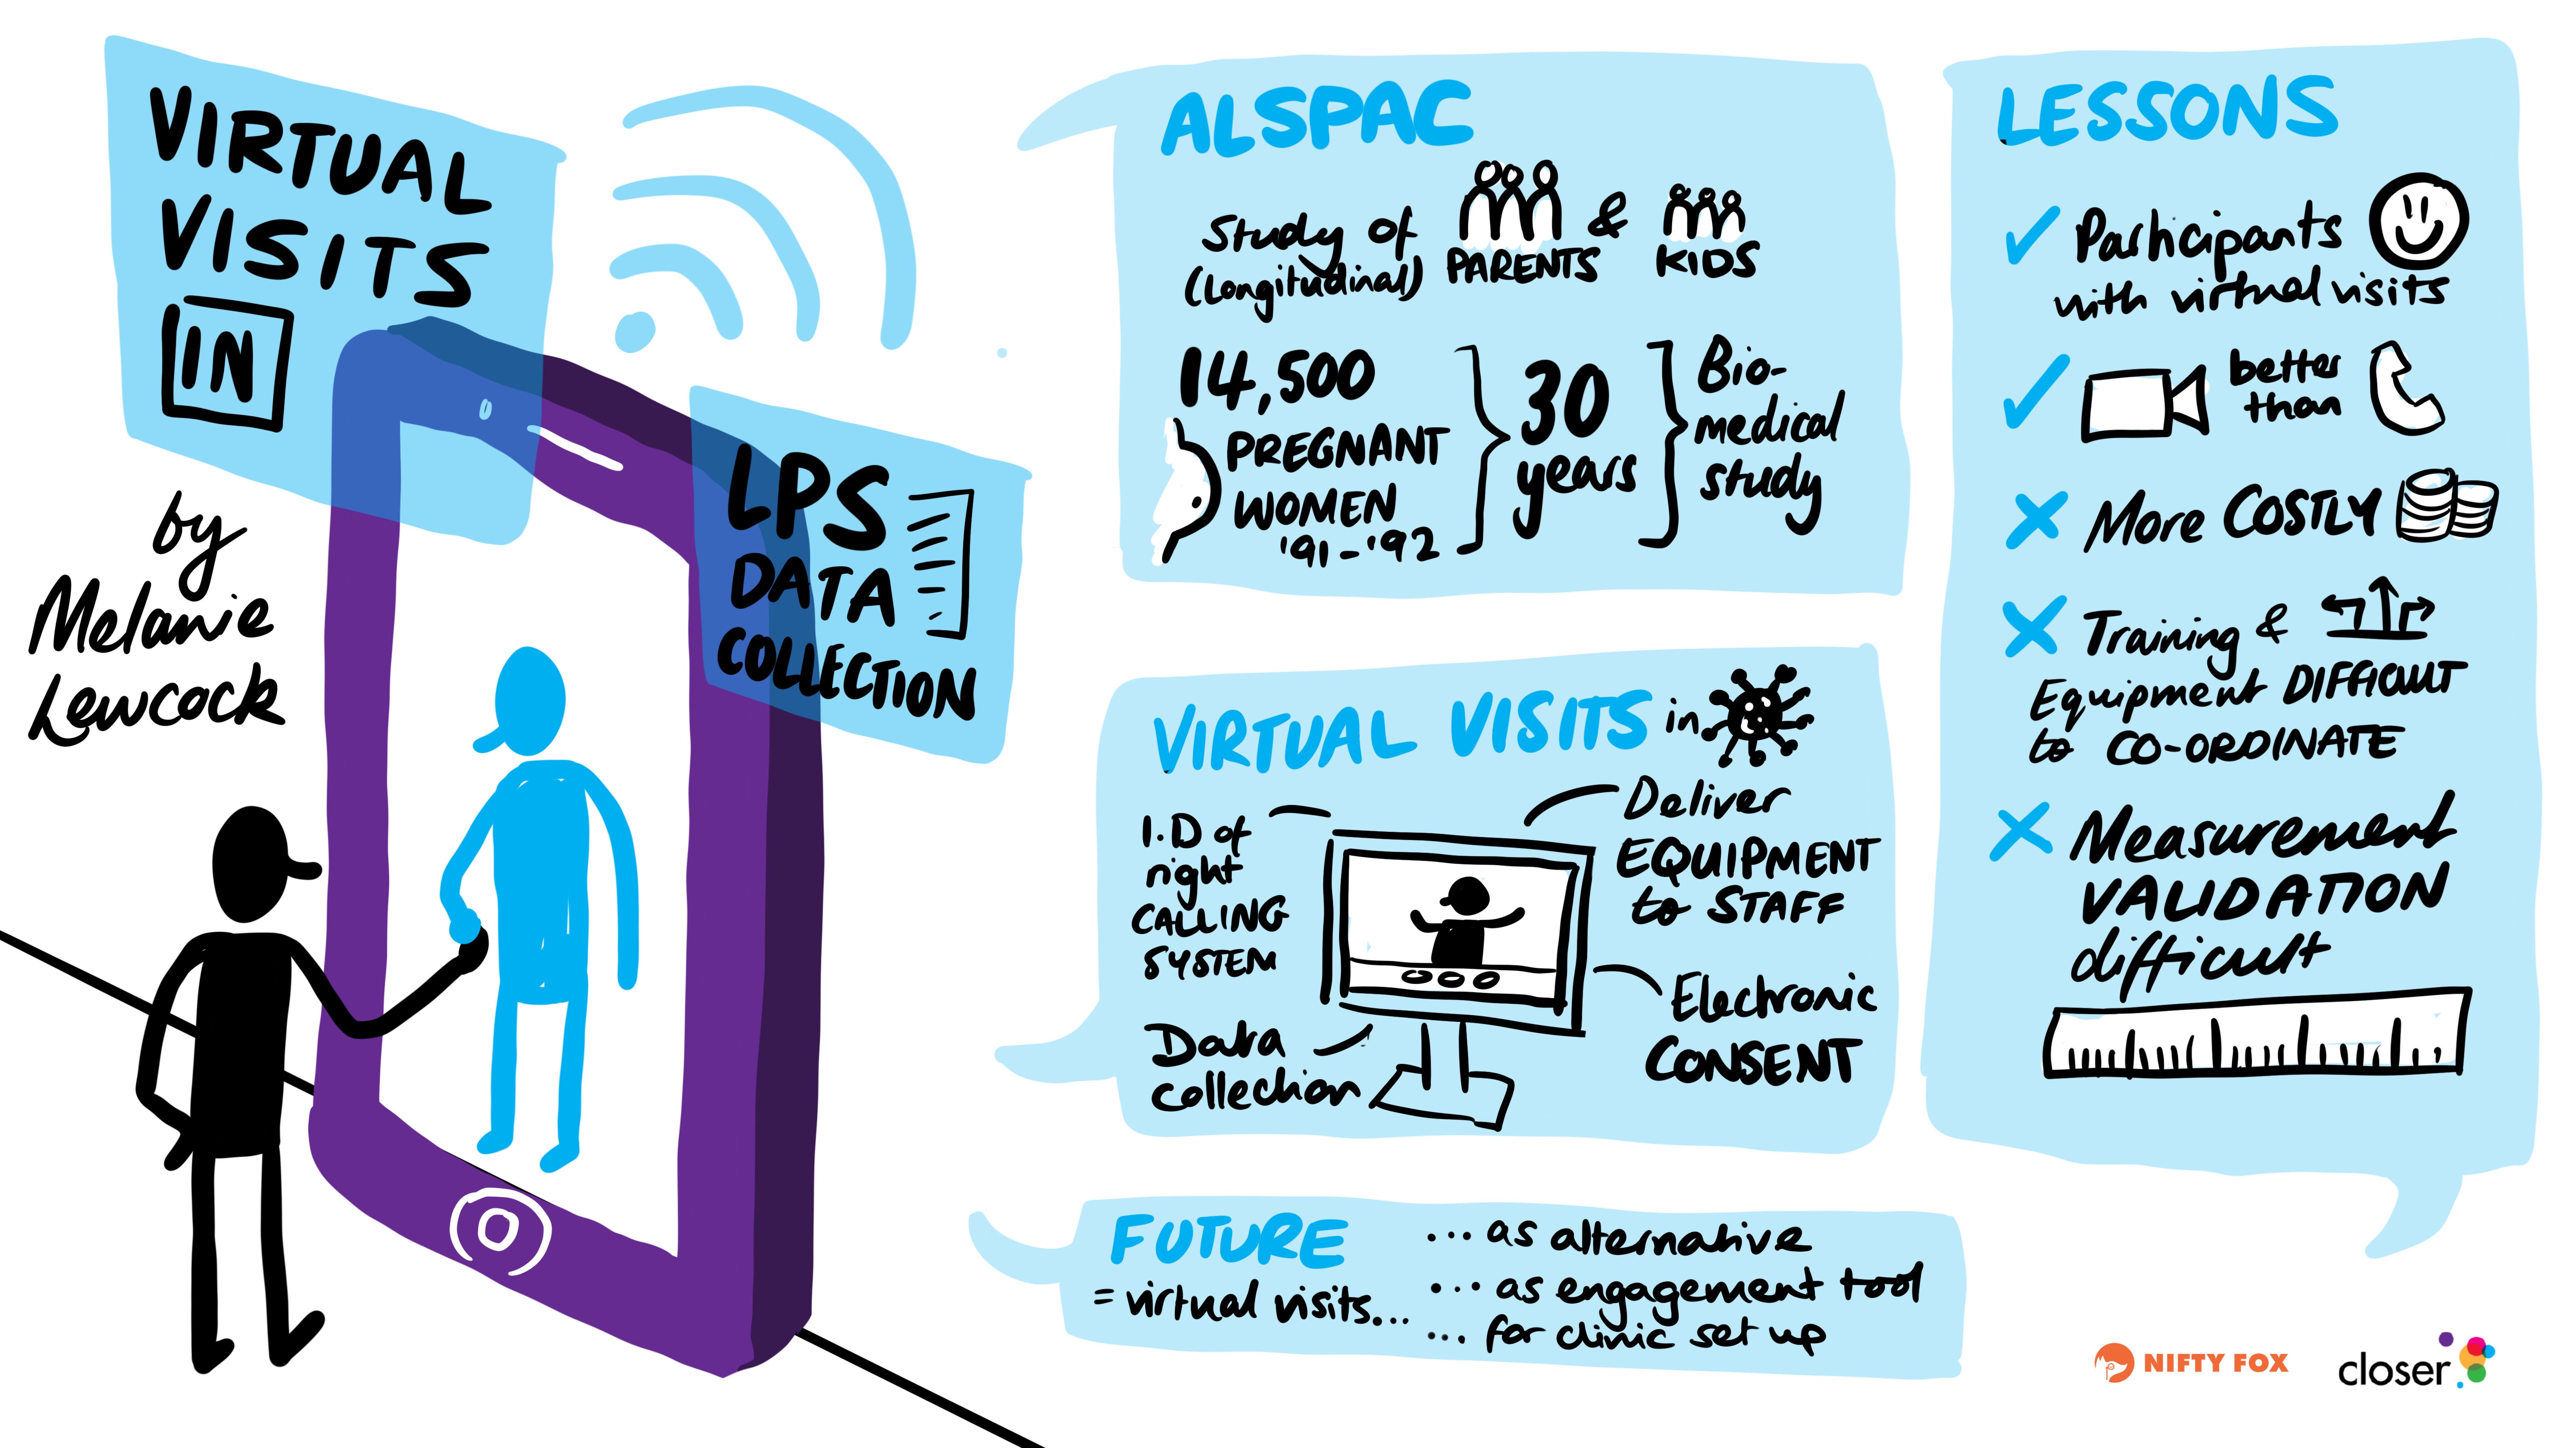 VIRTUAL
VISITS
IN
LPS
DATA
COLLECTION
by
Melanie
Lewcock
ALSPAC
Study of PARENTS & KIDS
(Longitudinal)
14,500
PREGNANT
WOMEN
'91-'92
30
years
Bio-
medical
study
VIRTUAL VISITS in
I.D of
right
CALLING
SYSTEM
Deliver
EQUIPMENT
to STAFF
Data
collection
Electronic
CONSENT
FUTURE
= virtual visits...
... as alternative
... as engagement tool
... for clinic set up
LESSONS
Participants
with virtual visits
better
than
More COSTLY
Training &
Equipment DIFFICULT
to CO-ORDINATE
Measurement
VALIDATION
difficult
NIFTY FOX
closer